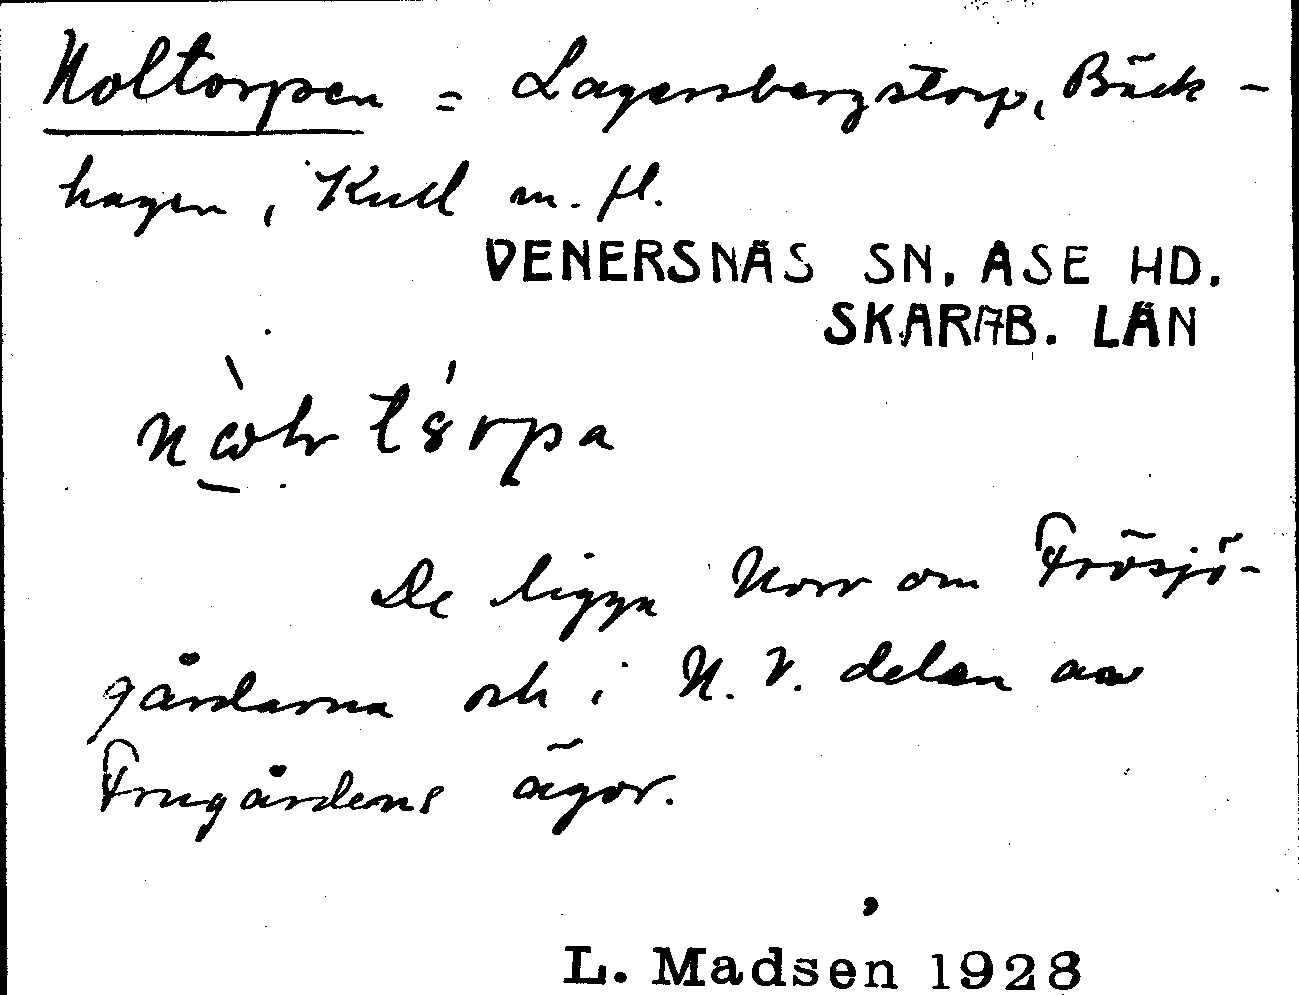 Noltorpen = Lagersbergstorp, Bäck-
hagen, Kull m. fl.
VENERSNÄS SN. ASE HD.
SKARAB. LÄN
De ligga Norr om Frösjö-
gårdarna och i N. V. delen av
Frugårdens ägor.
L. Madsen 1928